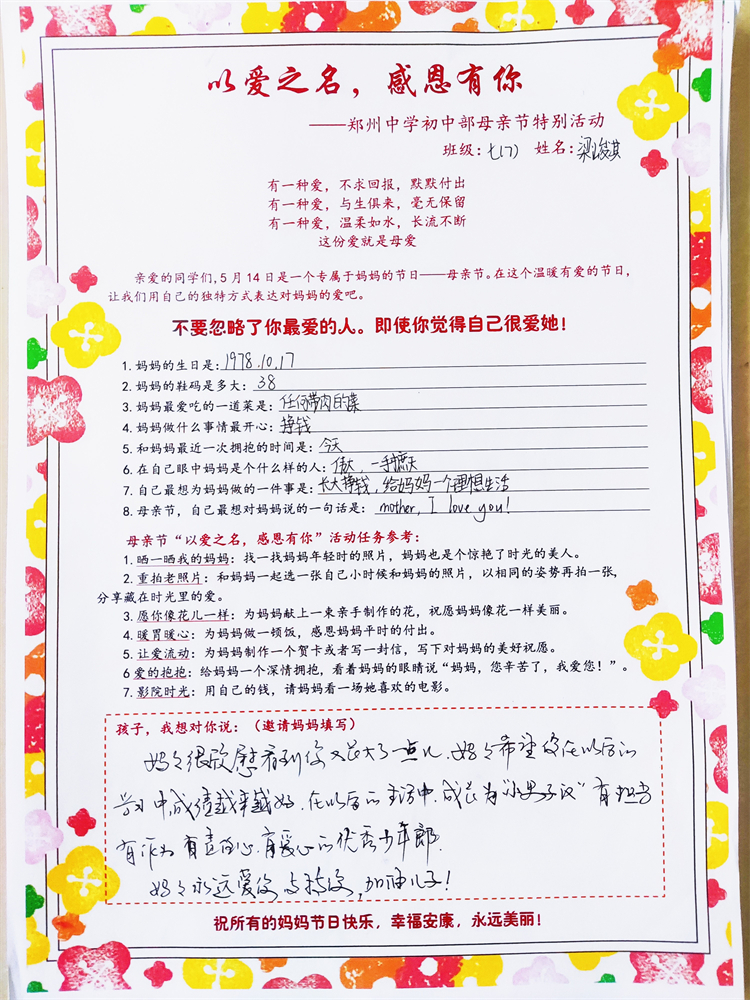 以爱之名，感恩有你
——郑州中学初中部母亲节特别活动
班级：七(7) 姓名：梁峻淇
有一种爱，不求回报，默默付出
有一种爱，与生俱来，毫无保留
有一种爱，温柔如水，长流不断
这份爱就是母爱
亲爱的同学们，5月14日是一个专属于妈妈的节日——母亲节。在这个温暖有爱的节日，
让我们用自己的独特方式表达对妈妈的爱吧。
不要忽略了你最爱的人。即使你觉得自己很爱她！
1. 妈妈的生日是：1978.10.17
2. 妈妈的鞋码是多大：38
3. 妈妈最爱吃的一道菜是：任何带肉的菜
4. 妈妈做什么事情最开心：挣钱
5. 和妈妈最近一次拥抱的时间是：今天
6. 在自己眼中妈妈是个什么样的人：伟大，一手遮天
7. 自己最想为妈妈做的一件事是：长大挣钱，给妈妈一个理想生活
8. 母亲节，自己最想对妈妈说的一句话是：mother, I love you!
母亲节“以爱之名，感恩有你”活动任务参考：
1. 晒一晒我的妈妈：找一找妈妈年轻时的照片，妈妈也是个惊艳了时光的美人。
2. 重拍老照片：和妈妈一起选一张自己小时候和妈妈的照片，以相同的姿势再拍一张，
分享藏在时光里的爱。
3. 愿你像花儿一样：为妈妈献上一束亲手制作的花，祝愿妈妈像花一样美丽。
4. 暖胃暖心：为妈妈做一顿饭，感恩妈妈平时的付出。
5. 让爱流动：为妈妈制作一个贺卡或者写一封信，写下对妈妈的美好祝愿。
6 爱的抱抱：给妈妈一个深情拥抱，看着妈妈的眼睛说“妈妈，您辛苦了，我爱您！”。
7. 影院时光：用自己的钱，请妈妈看一场她喜欢的电影。
孩子，我想对你说：（邀请妈妈填写）
妈妈很欣慰看到你又长大了一点儿.妈妈希望你在以后的
学习中成绩越来越好.在以后的生活中.成长为“小男子汉”有担当
有作为 有责的心.有爱心的优秀少年郎.
妈妈永远爱你 支持你,加油儿子！
祝所有的妈妈节日快乐，幸福安康，永远美丽！